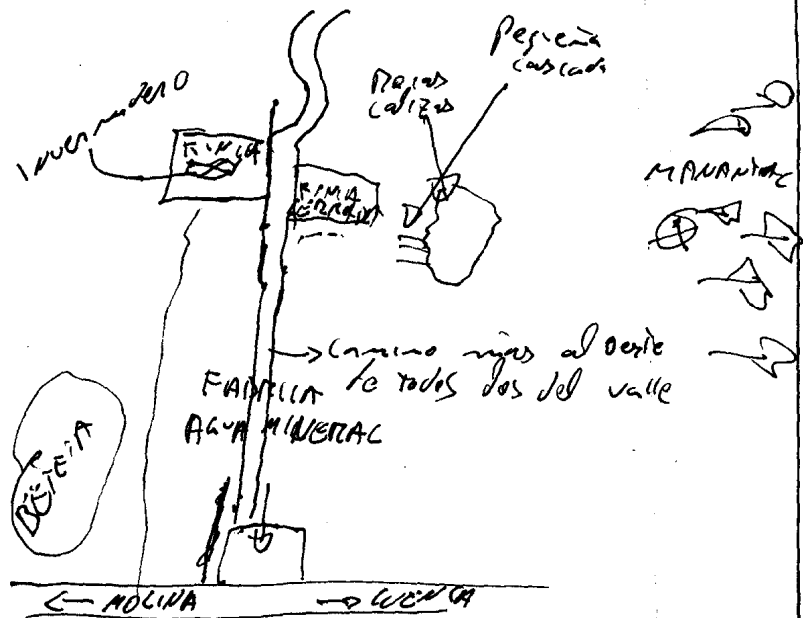 Pequeña
cascada
Rocas
calizas
Invernadero
FINCA
FINCA
MANANTIAL
Camino más al Oeste
de todos los del valle
FABRICA
AGUA MINERAL
BETETA
← MOLINA → CUENCA